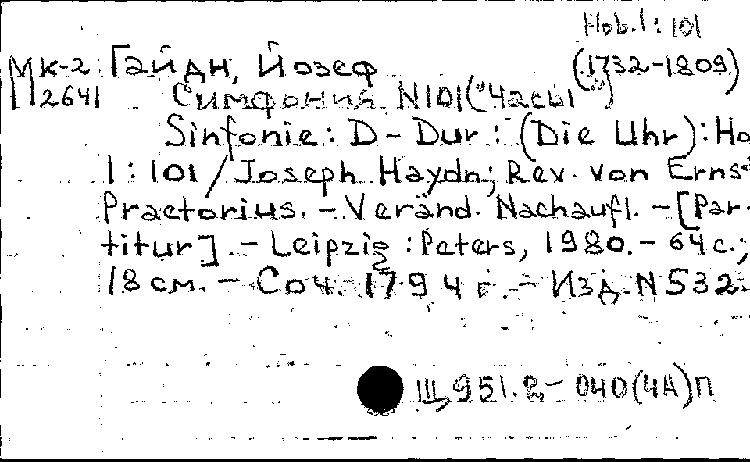 Hob.1:101
Мк-2 Гайдн, Йозеф (1732-1809)
П2641 Симфония N101("Часы")
Sinfonie: D-Dur: (Die Uhr): Ho
1:101/Joseph Haydn; Rev. von Erns
Praetorius. - Veränd. Nachaufl. - [Par-
titur]. - Leipzig: Peters, 1980. - 64 с.;
18 см. - Соч. 1794 г. - Изд. N 532
Щ951.2-040(4А)п